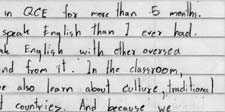 in QCE for more than 5 months.
speak English than I ever had.
ak English with other oversea
nd from it. In the classroom,
e also learn about culture, traditional
t countries. And because we